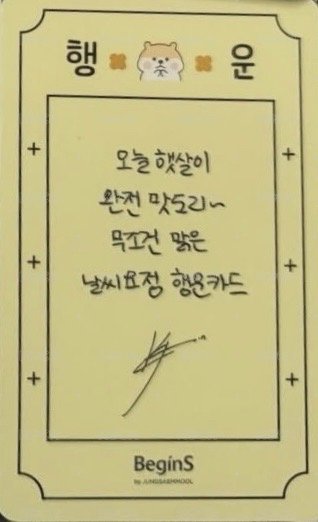 행 운
오늘 햇살이
완전 맛도리~
무조건 맑은
날씨요정 행운카드
BeginS
by JUNGSAEMMOOL